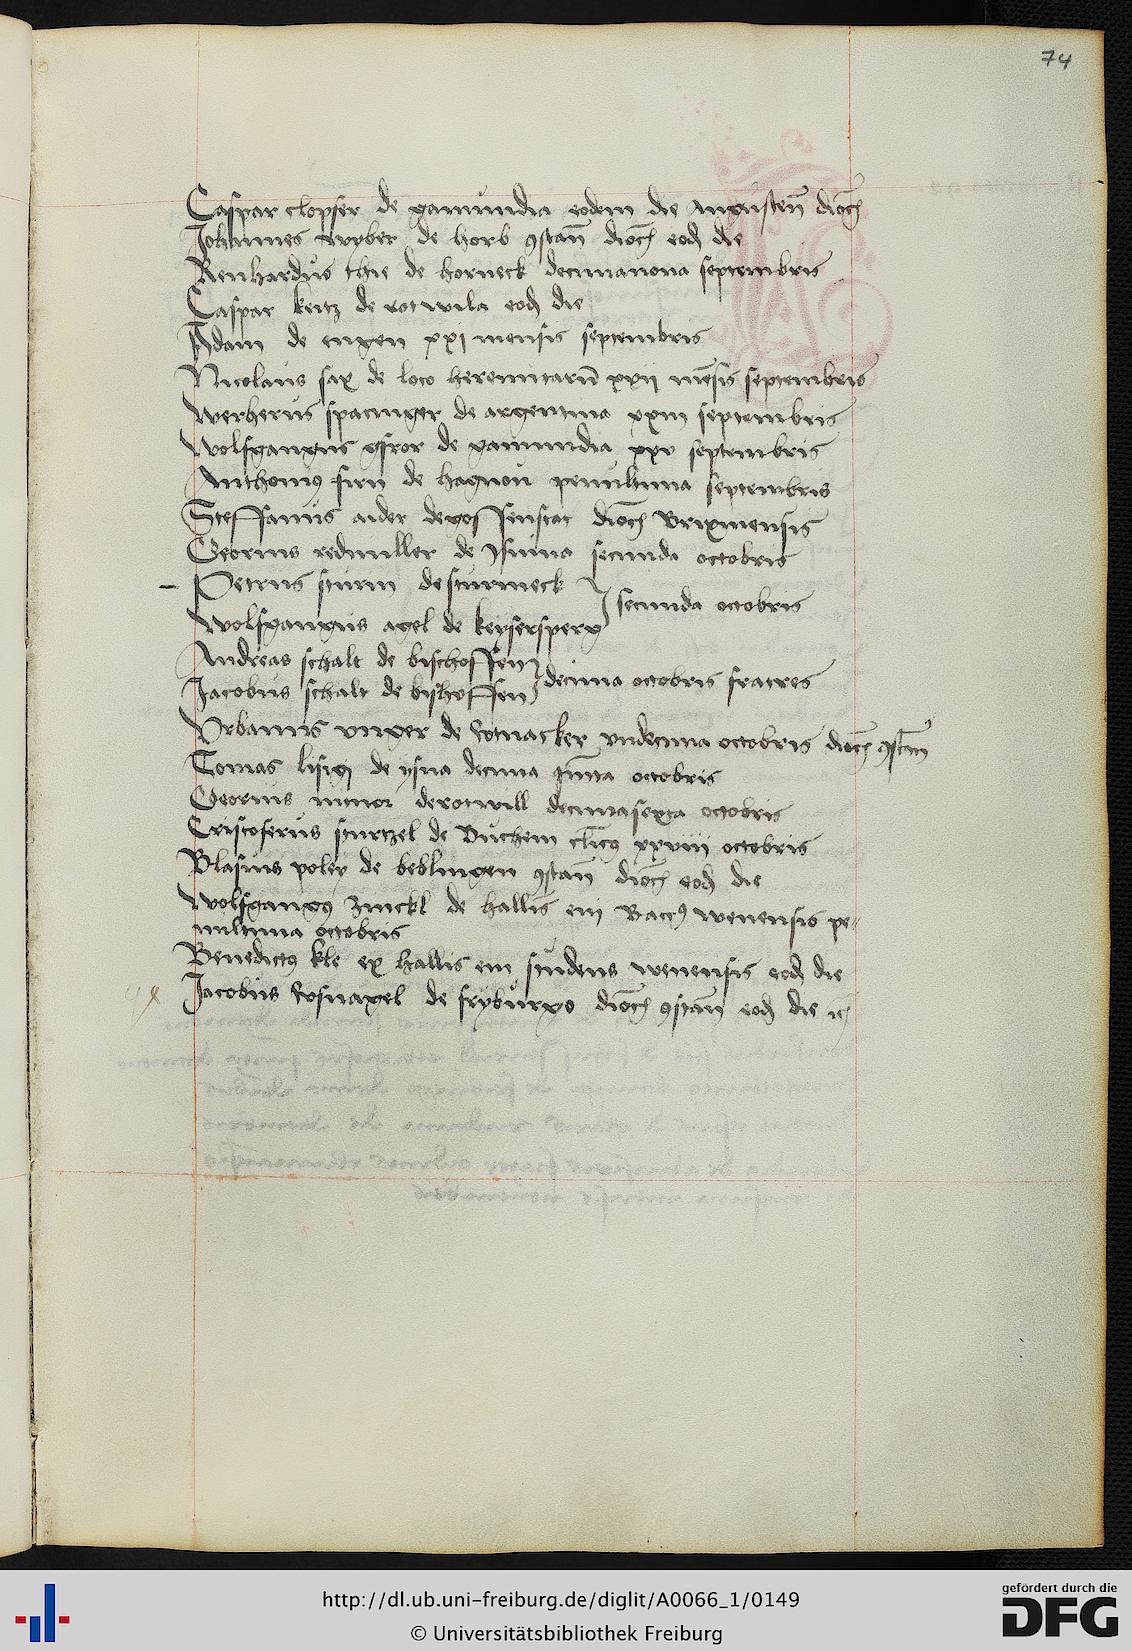 74
Caspar clopfer de gamundia eodem die Augusteñ dioc̄
Johannes wyber de horb ꝯstañ dioc̄ eod̄ die
Renhardus thie de horneck decimanona septembris
Caspar keitz de rotwila eod̄ die
Adam de engen xxj mensis septembris
Nicolaus sax de loco heremitarū xxij mēsis septembris
Wernherus spacinger de argentina xxiij septembris
Wolfgangus gfror de gamundia xxv septembris
Anthoniꝰ firn de hagnou penultima septembris
Steffanus aider dioc̄ Brixinensis
Georius redmuller de ysnina secunda octobris
Petrus sturm de sturmeck
secunda octobris
Wolfgangus agel de keysersperg
Andreas schalt de bischoffen
decima octobris fratres
Jacobus schalt de bishoffen
Vrbanus vnger de Rotnacker vndecima octobris dioc̄ ꝯstañ
Tomas de ysna decima octobris
Georius minor de rotwill decimasexta octobris
Cristoferus sturtzel de Buchem cl̄icꝰ xxviii octobris
Blasius poley de beblingen ꝯstañ dioc̄ eod̄ die
Wolfgangꝰ zinckl de hallis Baccꝰ wenensis pe
nultima octobris
Benedictꝰ kle ex hallis studens wenensis eod̄ die
Jacobus Rosnagel de fryburgo dioc̄ ꝯstañ eod̄ die
http://dl.ub.uni-freiburg.de/diglit/A0066_1/0149
© Universitätsbibliothek Freiburg
gefördert durch die
DFG